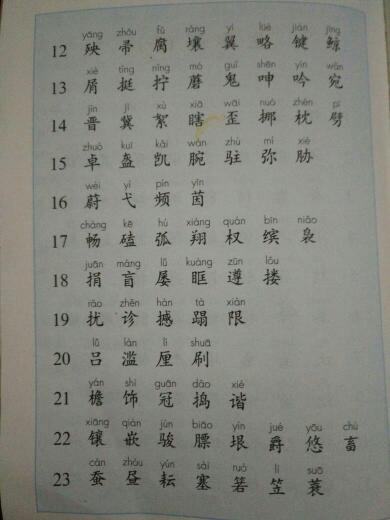 yāng zhǒu fǔ rǎng yì lüè jiàn jīng
12 殃 帚 腐 壤 翼 略 键 鲸
xiè tǐng nǐng mó guǐ shēn yín wǎn
13 屑 挺 拧 蘑 鬼 呻 吟 宛
jìn jì xù xiā wāi nuó zhěn pī
14 晋 冀 絮 瞎 歪 挪 枕 劈
zhuó kuī kǎi wàn zhù mí xié
15 卓 盔 凯 腕 驻 弥 胁
wèi yì pín yīn
16 蔚 弋 频 茵
chàng kē hú xiáng quán bīn niǎo
17 畅 磕 弧 翔 权 缤 袅
juān máng lǚ kuàng zūn lōu
18 捐 盲 屡 眶 遵 搂
rǎo zhěn hàn tā xiàn
19 扰 诊 撼 蹋 限
lǚ làn lí shuā
20 吕 滥 厘 刷
yán shì guān dǎo xié
21 檐 饰 冠 捣 谐
xiāng qiàn jùn biāo yín jué yōu chù
22 镶 嵌 骏 膘 垠 爵 悠 畜
cán zhòu yún sài ruò lì suō
23 蚕 昼 耘 塞 箬 笠 蓑